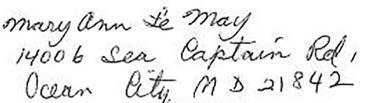 Mary Ann Le May
14006 Sea Captain Rd,
Ocean City, MD 21842